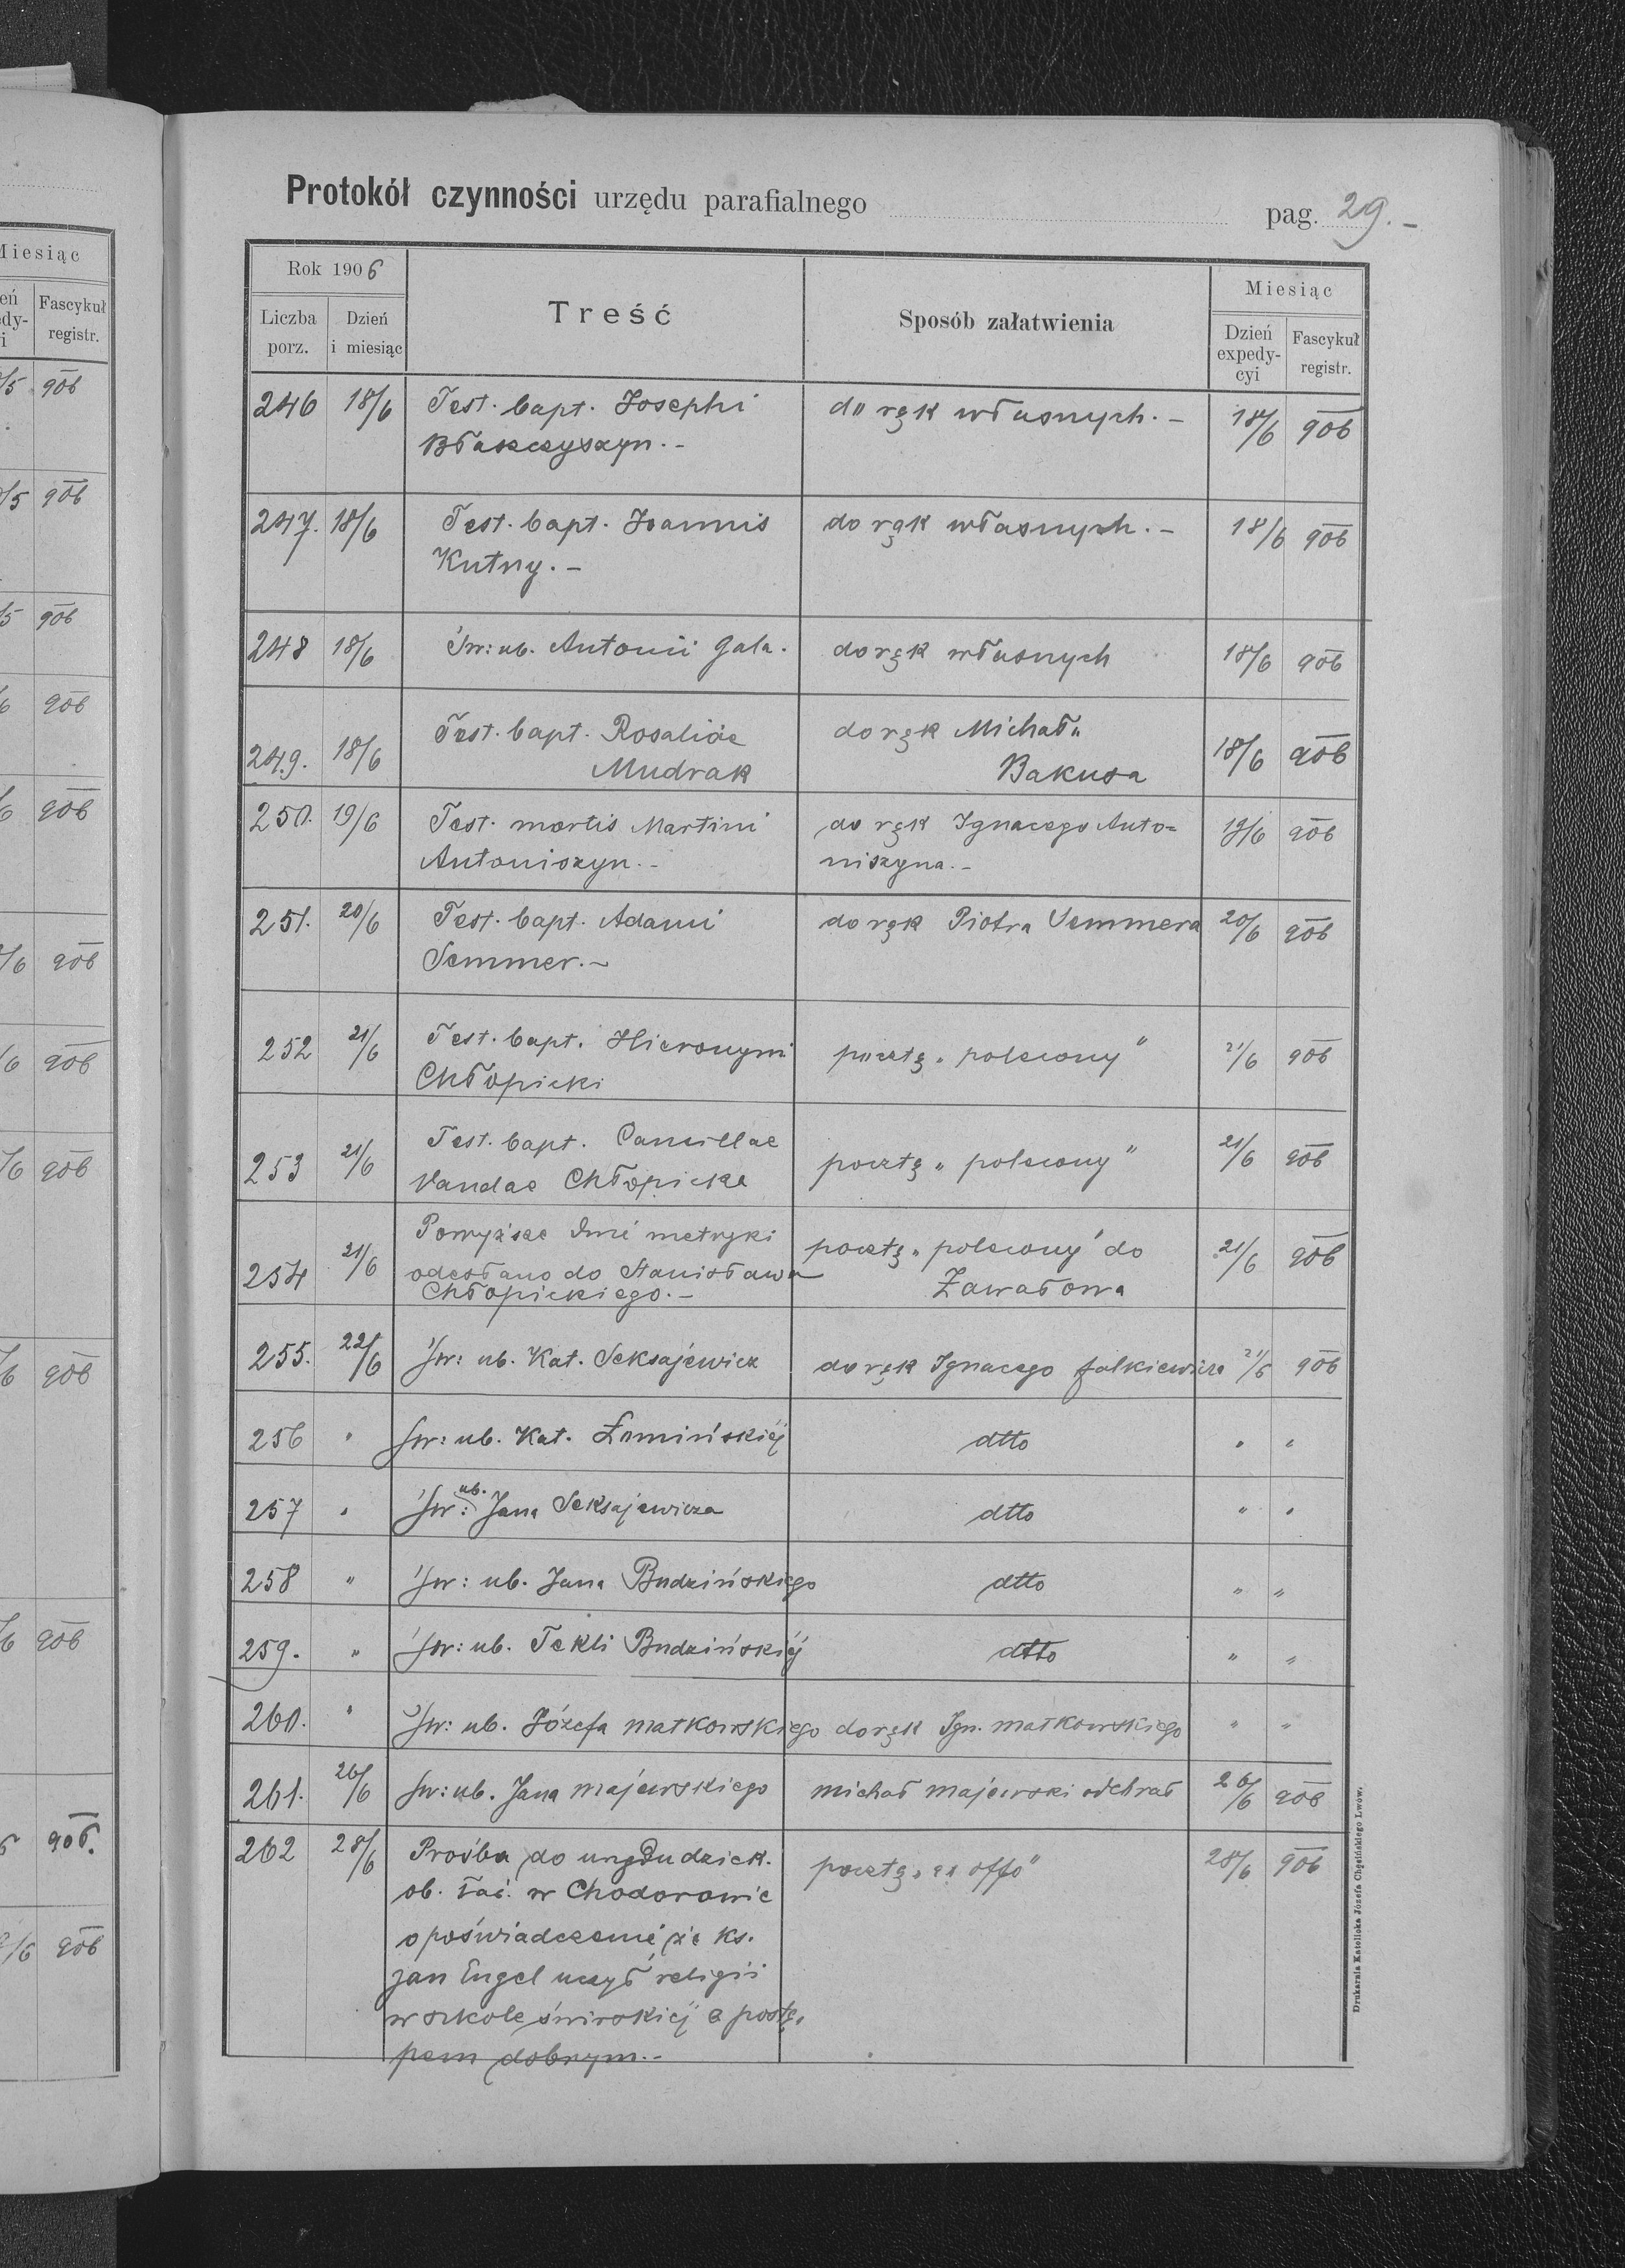 Miesiąc
Fascykuł
registr.
Protokół czynności urzędu parafialnego pag. 29.-
Rok 1906
Liczba porz.
Dzień i miesiąc
Treść
Sposób załatwienia
Miesiąc
Dzień expedy-cyi
Fascykuł registr.
246 18/6 Test. bapt. Josephi do rąk własnych.- 18/6 906
247. 18/6 Test. bapt. Joannis do rąk własnych.- 18/6 906
Kutny.-
248 18/6 Św: ub. Antonii Gala. do rąk własnych 18/6 906
249. 18/6 Test. bapt. Rosaliae do rąk Michała 18/6 906
Mudrak Bakusa
250. 19/6 Test. mortis Martini do rąk Ignacego Anto= 19/6 906
Antoniszyn.- niszyna.-
251. 20/6 Test. bapt. Adami do rąk Piotra Semmera 20/6 906
Semmer.-
252 21/6 Test. bapt. Hieronymi pocztą „polecony" 21/6 906
Chłopicki
253 21/6 Test. bapt. Camillae pocztą „polecony" 21/6 906
Vandae Chłopicka
254 21/6 Powyższe dwie metryki pocztą „polecony" do 21/6 906
odesłano do Stanisława Zawałowa
Chłopickiego.-
255. 22/6 Św: ub. Kat. Seksajewicz do rąk Ignacego Falkiewicza 21/6 906
256 " Św: ub. Kat. Łomińskiéj dtto " "
257 " Św: ub. Jana Seksajewicza dtto " "
258 " Św: ub. Jana Budzińskiego dtto " "
259. " Św: ub. Tekli Budzińskiéj dtto " "
260. " Św: ub. Józefa Matkowskiego do rąk Ign. Matkowskiego " "
261. 26/6 Św: ub. Jana Majewskiego Michał Majewski odebrał 26/6 906
262 28/6 Prośba do urzędu dziek. pocztą „ex offo" 28/6 906
ob. łać. w Chodorowie
o poświadczenie że ks.
Jan Engel uczył religii
w szkole świrskiéj z postę=
pem dobrym.-
Drukarnia Katolicka Józefa Chęcińskiego Lwów.